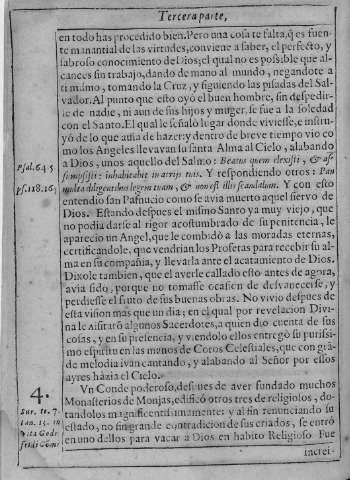 Tercera parte,
en todo has procedido bien. Pero una cosa te falta, q̃ es fuen-
te manantial de las virtudes, conviene a saber, el perfecto, y
sabroso conocimiento de Dios; el qual no es possible que al-
cances sin trabajo, dando de mano al mundo, negandote a
ti mismo, tomando la Cruz, y siguiendo las pisadas del Sal-
vador. Al punto que esto oyó el buen hombre, sin despedir-
se de nadie, ni aun de sus hijos y muger, se fue a la soledad
con el Santo. El qual le señaló lugar donde viviesse, e instru-
yó de lo que avia de hazer: y dentro de breve tiempo vio co
mo los Angeles llevavan su santa Alma al Cielo, alabando
a Dios, unos aquello del Salmo: Beatus quem elegisti, & as-
sumpsisti: inhabitabit in atrijs tuis. Y respondiendo otros: Pax
multa diligentibus legem tuam, & non est illis scandalum. Y con esto
entendió san Pafnucio como se avia muerto aquel siervo de
Dios. Estando despues el mismo Santo ya muy viejo, que
no podia darse al rigor acostumbrado de su penitencia, le
aparecio un Angel, que le combidó a las moradas eternas,
certificandole, que vendrian los Profetas para recebir su al-
ma en su compañia, y llevarla ante el acatamiento de Dios.
Dixole tambien, que el averle callado esto antes de agora,
avia sido, porque no tomasse ocasion de desvanecerse, y
perdiesse el fruto de sus buenas obras. No vivio despues de
esta vision mas que un dia; en el qual por revelacion Divi-
na le visitaró algunos Sacerdotes, a quien dio cuenta de sus
cosas, y en su presencia, y viendolo ellos entregó su purissi-
mo espiritu en las manos de Coros Celestiales, que con grã-
de melodia ivan cantando, y alabando al Señor por essos
ayres házia el Cielo.
Un Conde poderoso, despues de aver fundado muchos
Monasterios de Monjas, edificó otros tres de religiosos, do-
tandolos magnificentissimamente: y al fin renunciando su
estado, no sin grande contradicion de sus criados, se entró
en uno dellos para vacar a Dios en habito Religioso Fue
increi-
Psal. 64. 5
ps. 118. 16
4.
Sur. to. 7.
Ian. 13. in